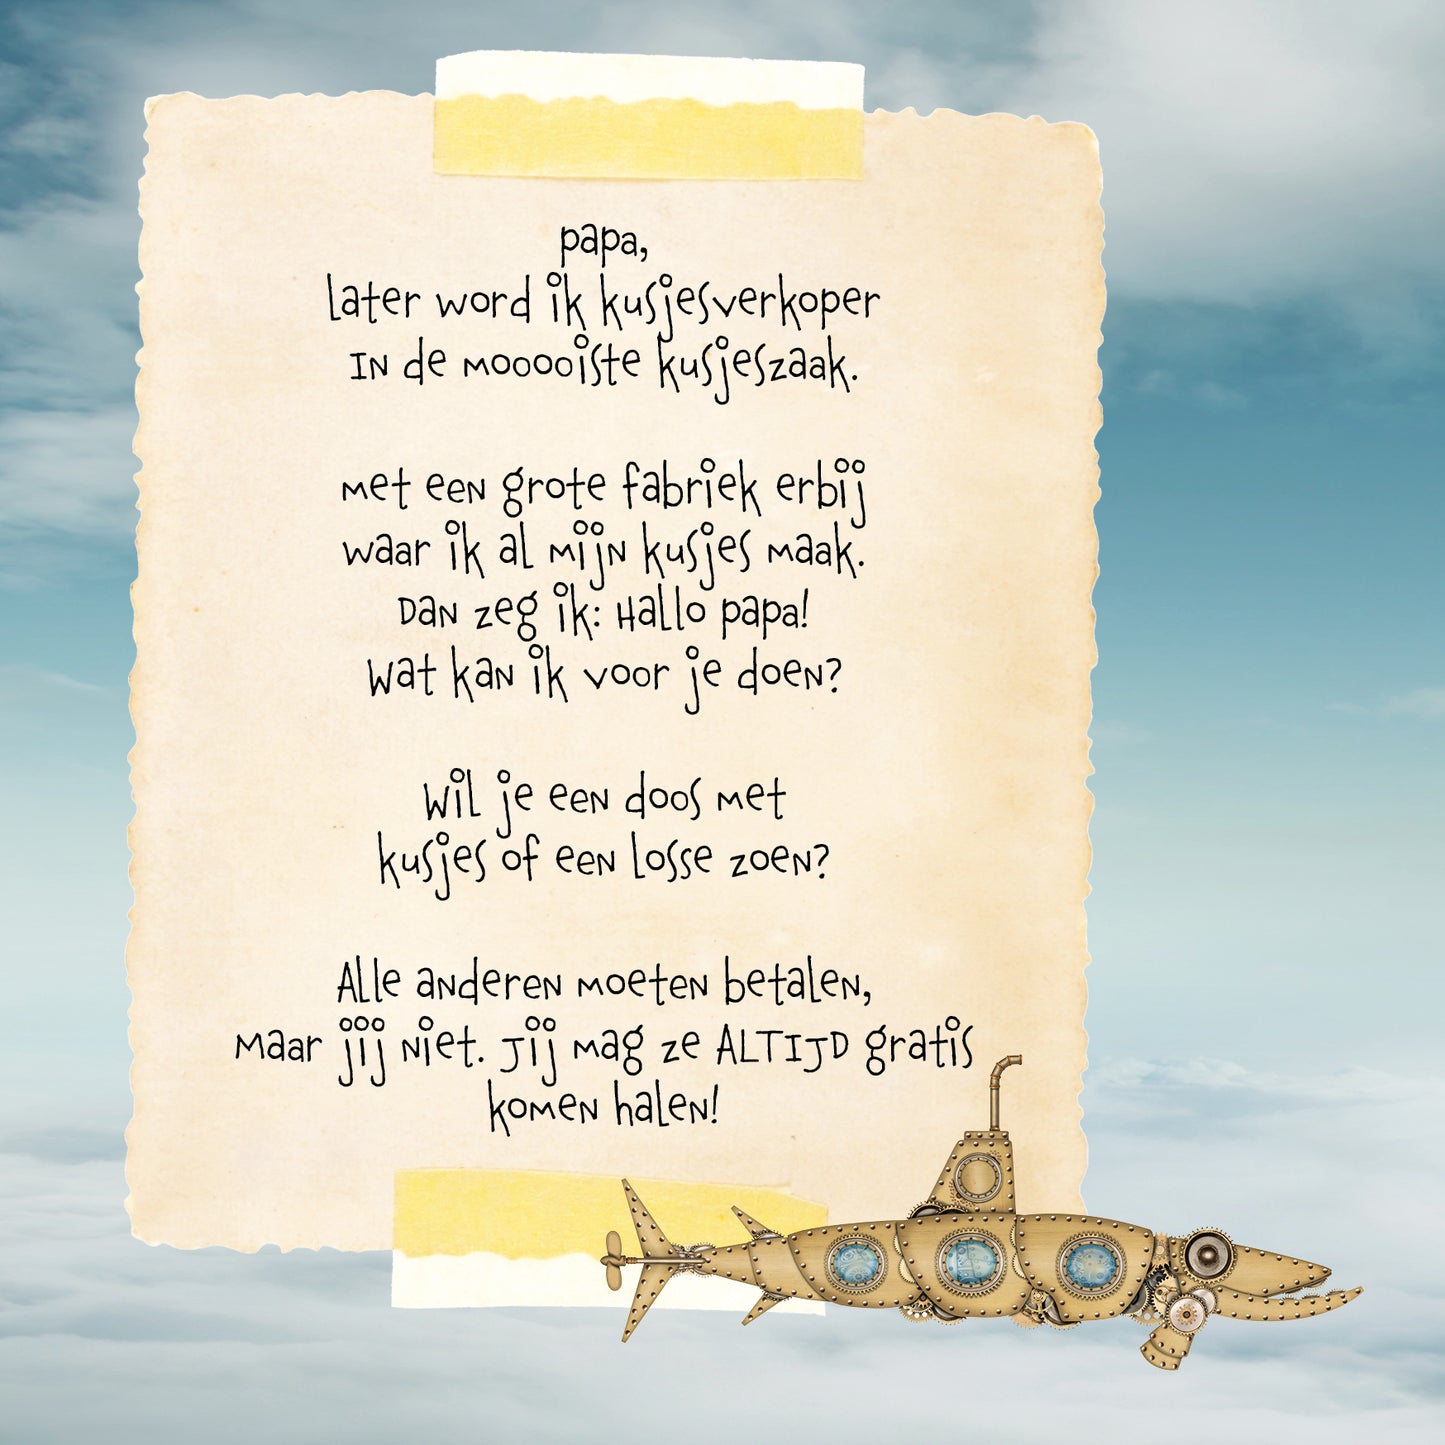 papa,
Later word ik kusjesverkoper
IN de mooooiste kusjeszaak.
met een grote fabriek erbij
waar ik al mijn kusjes maak.
Dan zeg ik: Hallo papa!
Wat kan ik voor je doen?
Wil je een doos met
kusjes of een losse zoen?
Alle anderen moeten betalen,
maar jij niet. Jij mag ze ALTIJD gratis
komen halen!